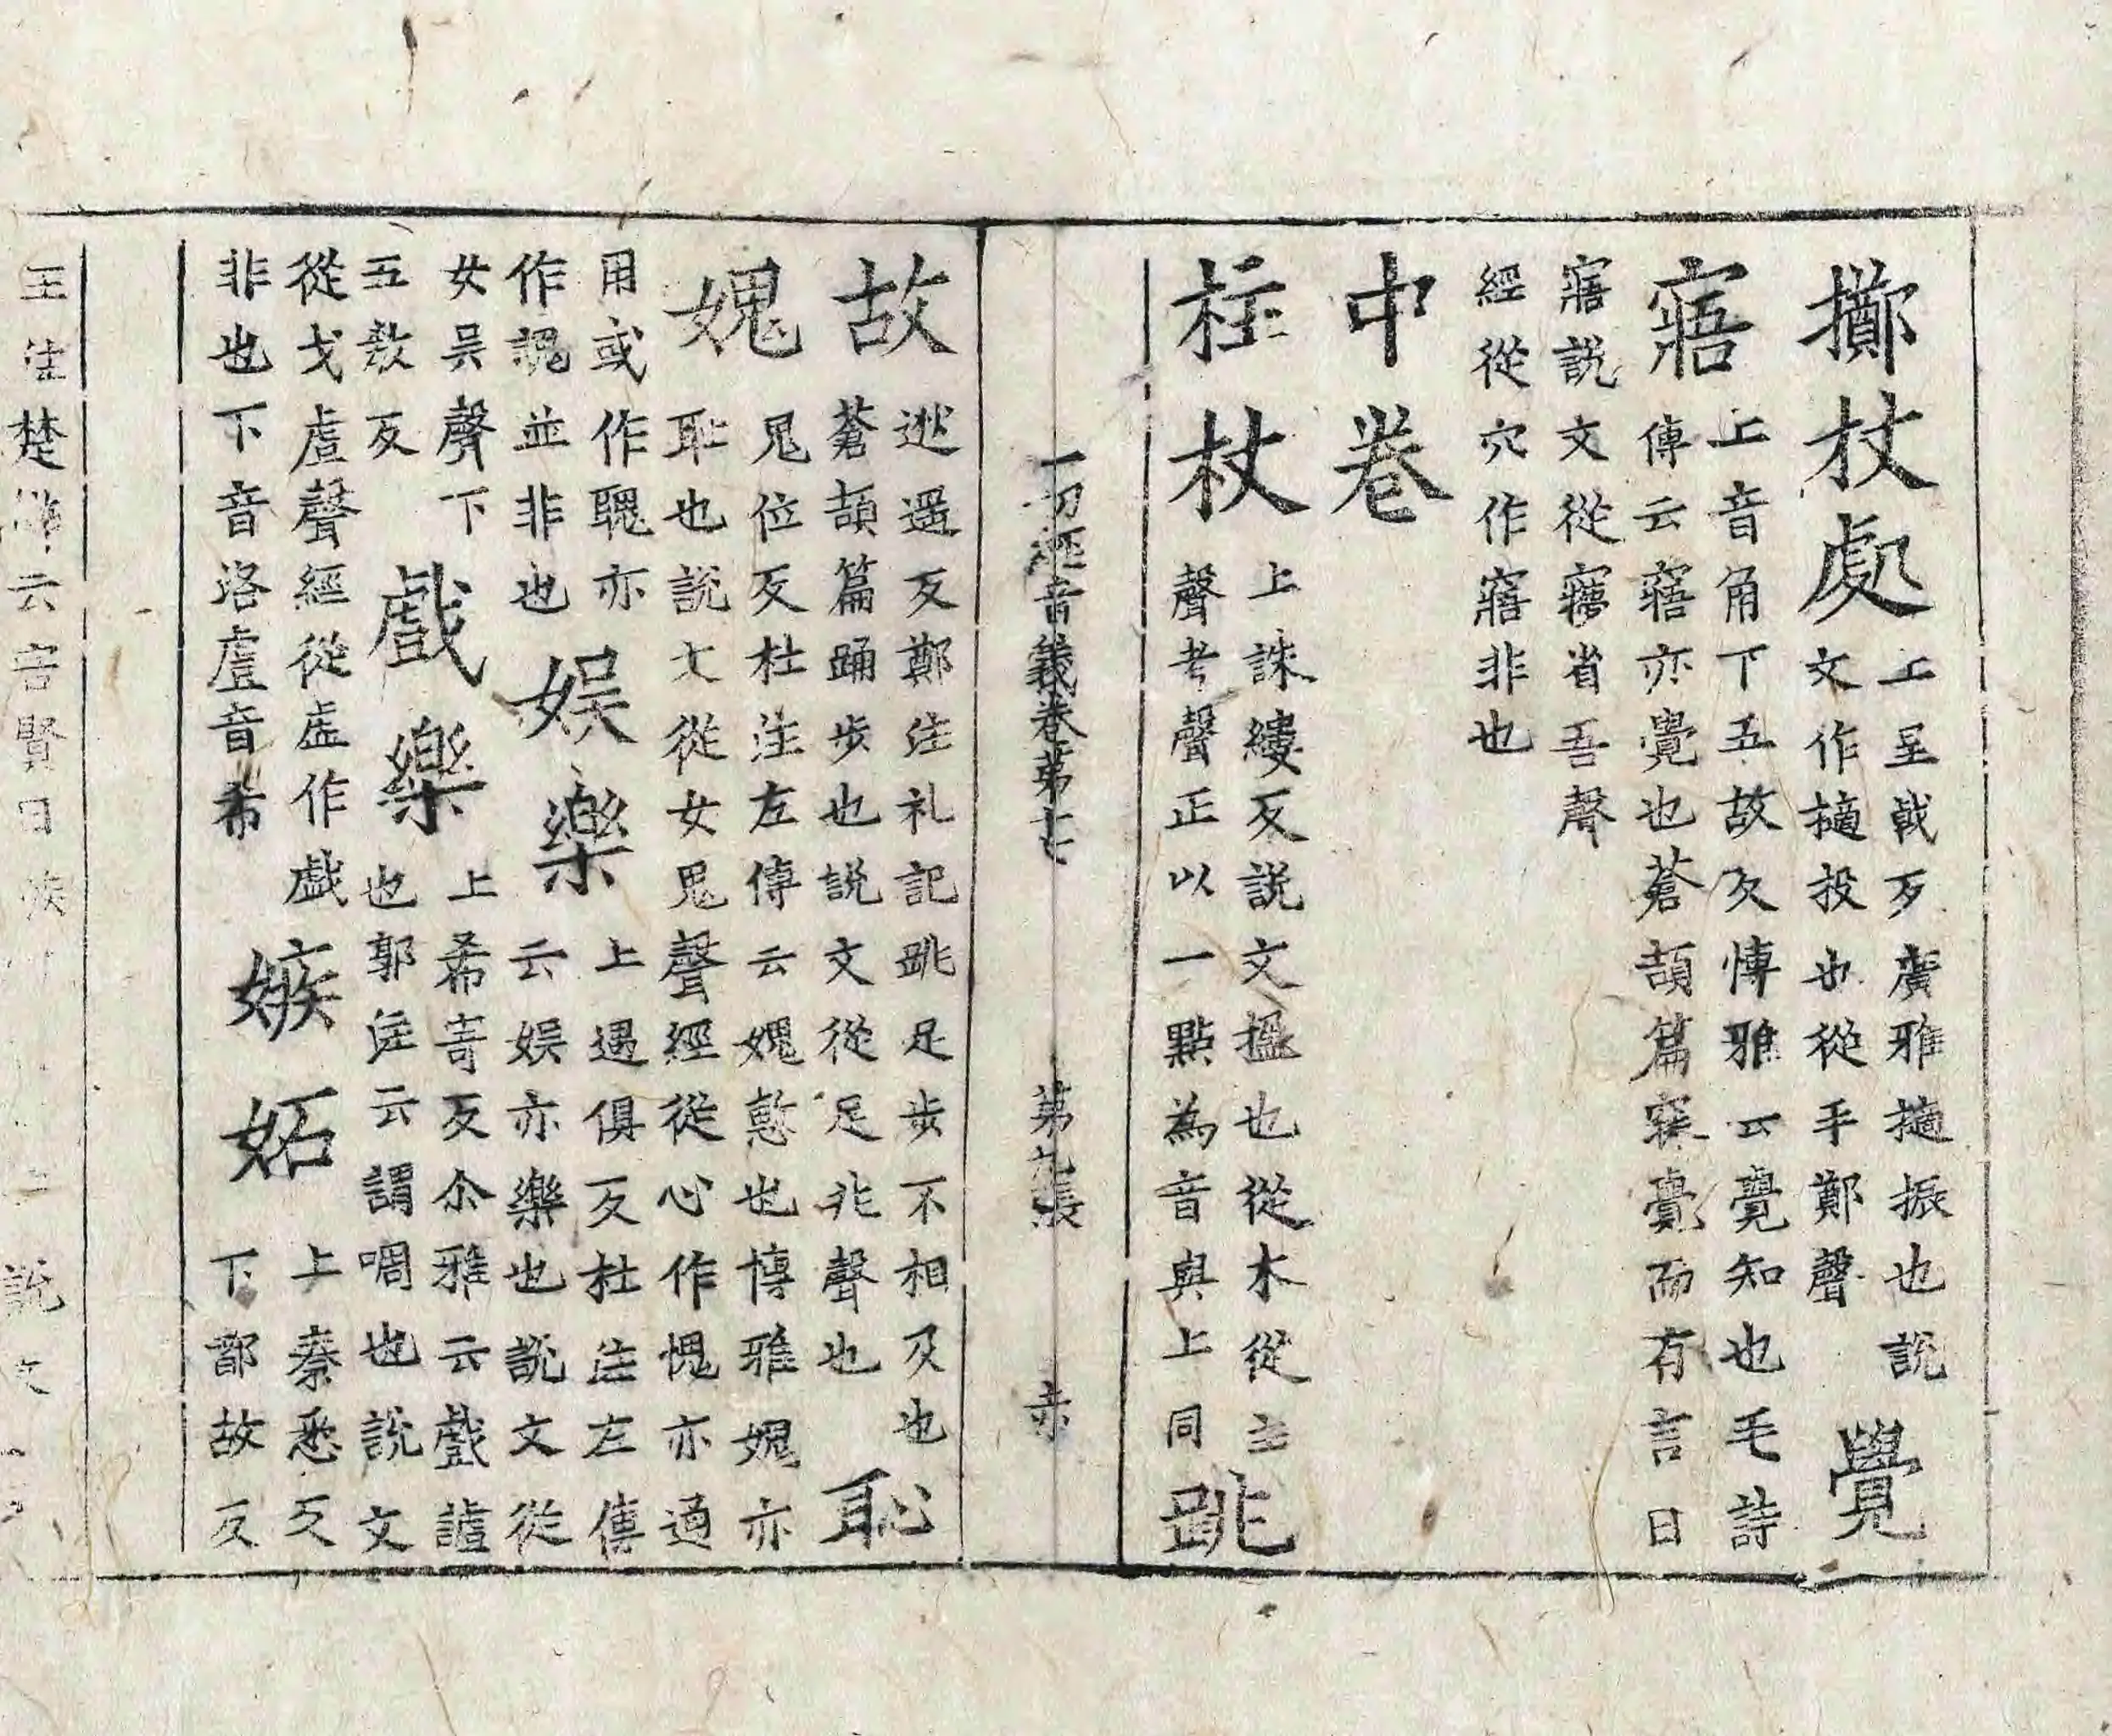 擲杖處
上呈戟反廣雅擿振也說
文作擿投也從手鄭聲
覺
寤
上音角下五故反慱雅云覺知也毛詩
傳云寤亦覺也蒼頡篇寐覺而有言曰
寤說文從㝱省吾聲
經從穴作窹非也
中卷
柱杖
上誅縷反說文榲也從木從主
聲考聲正以一點為音與上同
跳
故
逃遥反鄭注礼記跳足步不相及也
蒼頡篇踊步也說文從足兆聲也
恥
媿
皃位反杜注左傳云媿慙也博雅媿亦
恥也說文從女鬼聲經從心作愧亦通
用或作聭亦
作謉並非也
娯樂
上遇俱反杜注左傳
云娯亦樂也說文從
女吴聲下
五敎反
戲樂
上希寄反尒雅云戲謔
也郭注云謂啁也說文
從戈䖒聲經從虛作戯
非也下音洛䖒音希
嫉妬
上秦悉反
下都故反
一切經音義卷第七 第九張 赤